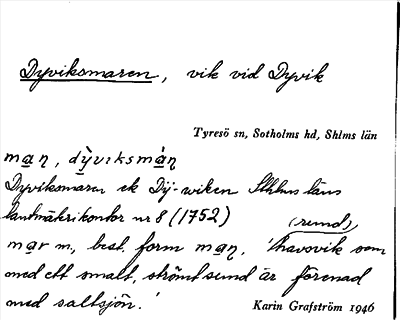 Dyviksmaren, vik vid Dyvik
Tyresö sn, Sotholms hd, Shlms län
maṇ, dỳvıksmàṇ
Dyviksmaren ek Dÿ-wiken Sthlms läns
lantmäterikontor nr 8 (1752)
(rund)
mar m., best. form maṇ, 'havsvik som
med ett smalt, strömt sund är förenad
med saltsjön.'
Karin Grafström 1946